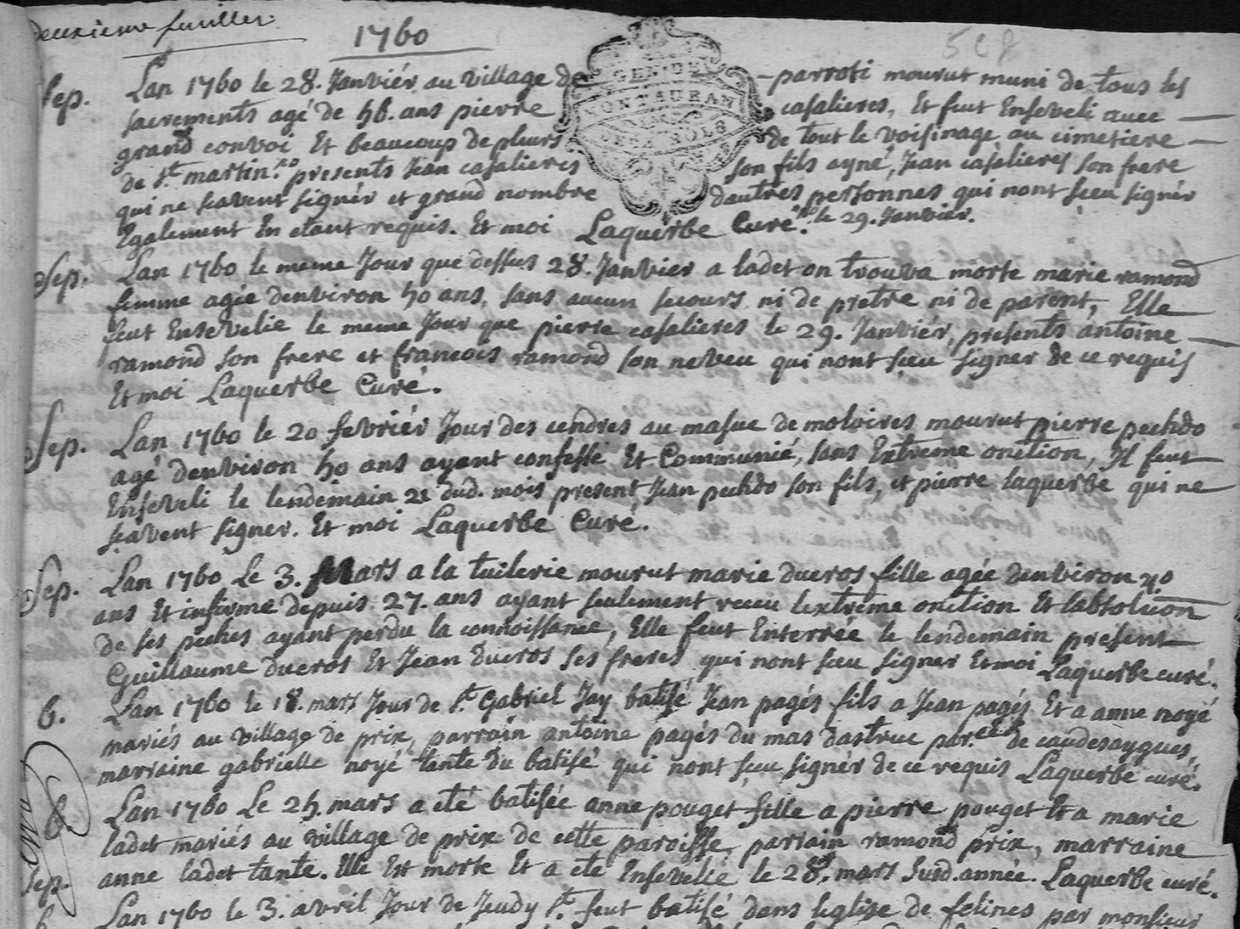 deuxieme feuillet
1760
Sep. Lan 1760 le 28. Janviér au village de parroti mourut muni de tous les
sacrements agé de 56. ans pierre casalieres, Et feut Enseveli avec
grand convoi Et beaucoup de pleurs de tout le voisinage au cimetiere
de st. martin. presents Jean casalieres son fils ayné, Jean casalieres son frere
qui ne scavent signér et grand nombre dautres personnes qui nont sceu signér
Egalement En etant requis. Et moi Laquerbe Curé. le 29. Janvier.
GEN. DE
MONTAUBAN
Sep. Lan 1760 le meme Jour que dessus 28. Janvier a ladet on trouva morte marie ramond
femme agée denviron 50 ans, sans aucun secours ni de pretre ni de parent, Elle
feut Ensevelie le meme Jour que pierre casalieres le 29. Janviér, presents antoine
ramond son frere et francois ramond son neveu qui nont sceu signer de ce requis
Et moi Laquerbe Curé.
Sep. Lan 1760 le 20 fevriér Jour des cendres au masue de moloires mourut pierre
agé denviron 50 ans ayant confessé Et Communié, sans Extreme onction, Il feut
Enseveli le lendemain 21 dud. mois present Jean son fils, et pierre laquerbe qui ne
scavent signer. Et moi Laquerbe Curé.
Sep. Lan 1760 Le 3. Mars a la tuilerie mourut marie ducros fille agée denviron 40
ans Et infirme depuis 27. ans ayant seulement receu lextreme onction Et labsolution
de ses peches ayant perdu la connoissance, Elle feut Enterrée le lendemain present
Guillaume ducros Et Jean ducros ses freres qui nont sceu signer Et moi Laquerbe curé.
b. Lan 1760 le 18. mars Jour de st. Gabriel Jay batisé Jean pagés fils a Jean pagés Et a anne noyé
mariés au village de prix, parrain antoine pagés du mas dastruc par. de caudesaygues,
marraine gabrielle noyé tante du batisé qui nont sceu signer de ce requis Laquerbe curé.
b Lan 1760 Le 25. mars a eté batisée anne pouget fille a pierre pouget Et a marie
ladet mariés au village de prix de cette paroisse, parrain ramond prix, marraine
Sep. anne ladet tante. Elle Est morte Et a eté Ensevelie le 28. mars susd. année. Laquerbe curé.
Lan 1760 le 3. avril Jour de Jeudy st. feut batisé dans leglise de felines par monsieur